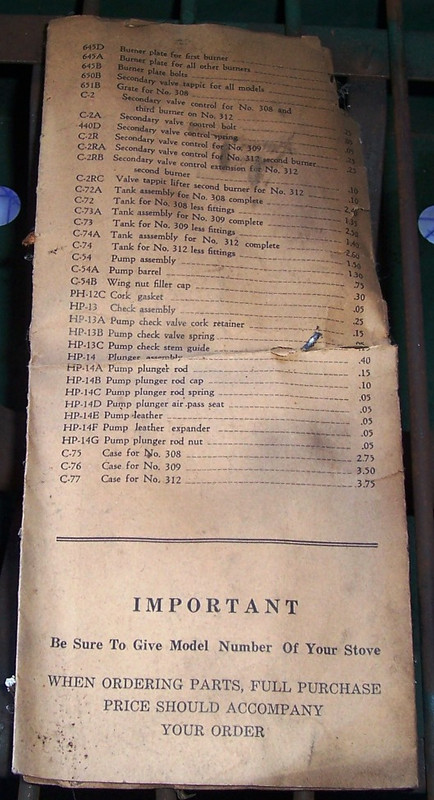 645D Burner plate for first burner
645A Burner plate for all other burners
645B Burner plate bolts
650B Secondary valve tappit for all models
651B Grate for No. 308
C-2 Secondary valve control for No. 308 and
third burner on No. 312
C-2A Secondary valve control bolt
440D Secondary valve control spring
C-2R Secondary valve control for No. 309
C-2RA Secondary valve control for No. 312 second burner .25
C-2RB Secondary valve control extension for No. 312
second burner .10
C-2RC Valve tappit lifter second burner for No. 312 .10
C-72A Tank assembly for No. 308 complete
C-72 Tank for No. 308 less fittings
C-73A Tank assembly for No. 309 complete
C-73 Tank for No. 309 less fittings
C-74A Tank asssembly for No. 312 complete
C-74 Tank for No. 312 less fittings
C-54 Pump assembly
C-54A Pump barrel
C-54B Wing nut filler cap .75
PH-12C Cork gasket .30
HP-13 Check assembly .05
HP-13A Pump check valve cork retainer .25
HP-13B Pump check valve spring .15
HP-13C Pump check stem guide
HP-14 Plunger assembly .40
HP-14A Pump plunger rod .15
HP-14B Pump plunger rod cap .10
HP-14C Pump plunger rod spring .05
HP-14D Pump plunger air pass seat .05
HP-14E Pump leather .05
HP-14F Pump leather expander .05
HP-14G Pump plunger rod nut .05
C-75 Case for No. 308 2.75
C-76 Case for No. 309 3.50
C-77 Case for No. 312 3.75
IMPORTANT
Be Sure To Give Model Number Of Your Stove
WHEN ORDERING PARTS, FULL PURCHASE
PRICE SHOULD ACCOMPANY
YOUR ORDER